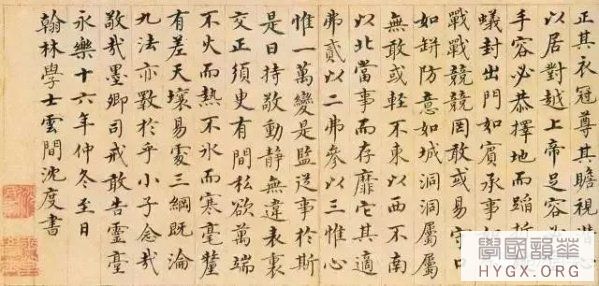 正其衣冠尊其瞻視潛心
以居對越上帝足容必
手容必恭擇地而蹈折
蟻封出門如賓承事如
戰戰兢兢罔敢或易守口
如缾防意如城洞洞屬屬
無敢或輕不東以西不南
以北當事而存靡它其適
弗貳以二弗參以三惟心
惟一萬變是監從事於斯
是曰持敬動靜無違表裏
交正須臾有間私欲萬端
不火而熱不冰而寒毫釐
有差天壤易處三綱既淪
九法亦斁於乎小子念哉
敬哉墨卿司戒敢告靈臺
永樂十六年仲冬至日
翰林學士雲間沈度書
學國韻華
HYGX.ORG